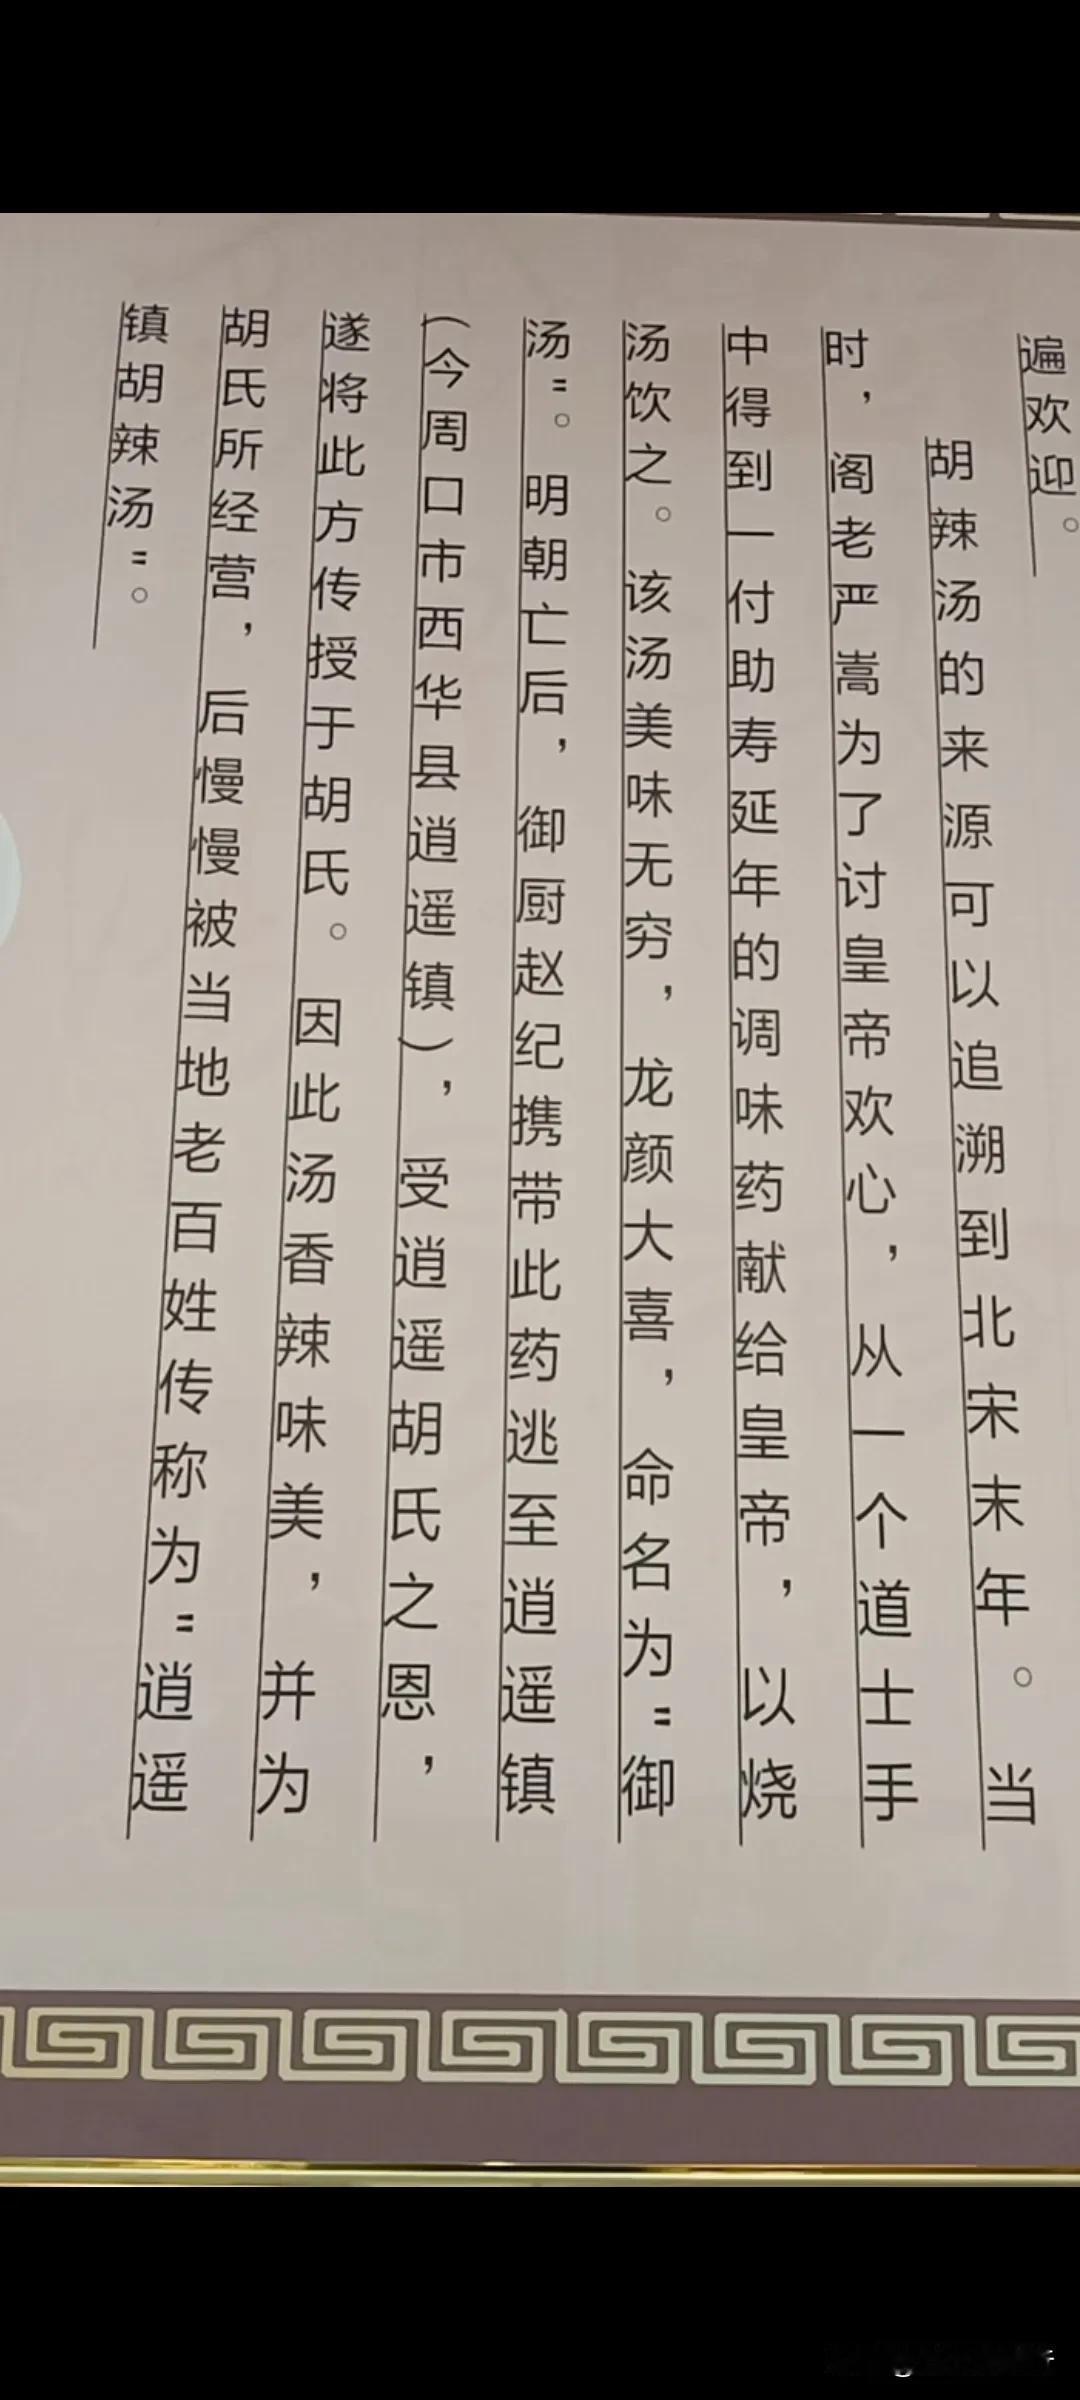 遍欢迎。
胡辣汤的来源可以追溯到北宋末年。当
时，阁老严嵩为了讨皇帝欢心，从一个道士手
中得到一付助寿延年的调味药献给皇帝，以烧
汤饮之。该汤美味无穷，龙颜大喜，命名为"御
汤"。明朝亡后，御厨赵纪携带此药逃至逍遥镇
（今周口市西华县逍遥镇），受逍遥胡氏之恩，
遂将此方传授于胡氏。因此汤香辣味美，并为
胡氏所经营，后慢慢被当地老百姓传称为"逍遥
镇胡辣汤"。